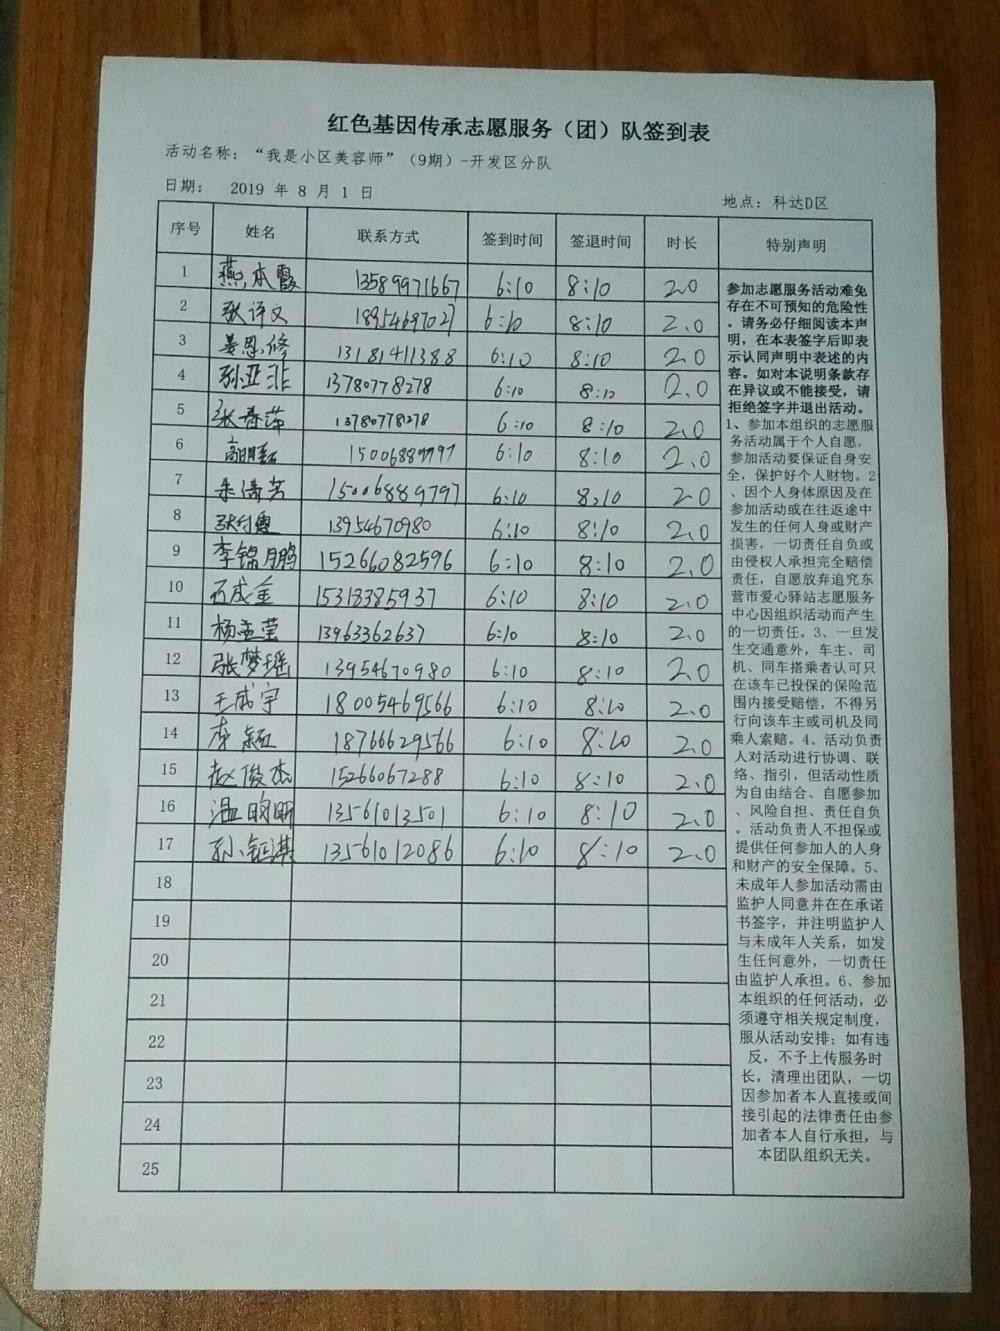 红色基因传承志愿服务（团）队签到表
活动名称：“我是小区美容师”（9期）-开发区分队
日期： 2019 年 8 月 1 日
地点：科达D区
序号 姓名 联系方式 签到时间 签退时间 时长 特别声明
1 燕本霞 13589971667 6:10 8:10 2.0
2 张译文 18954697027 6:10 8:10 2.0
3 姜恩修 13181411388 6:10 8:10 2.0
4 孙亚非 13780778278 6:10 8:10 2.0
5 张春萍 13780778278 6:10 8:10 2.0
6 15006889797 6:10 8:10 2.0
7 朱涛芳 15006889797 6:10 8:10 2.0
8 13954670980 6:10 8:10 2.0
9 李锦鹏 15266082596 6:10 8:10 2.0
10 石成金 15318385937 6:10 8:10 2.0
11 杨孟莹 13963362637 6:10 8:10 2.0
12 张梦瑶 13954670980 6:10 8:10 2.0
13 王成宇 18005469566 6:10 8:10 2.0
14 18766629566 6:10 8:10 2.0
15 赵俊杰 15266067288 6:10 8:10 2.0
16 温昀昕 13561013501 6:10 8:10 2.0
17 孙钰淇 13561012086 6:10 8:10 2.0
18
19
20
21
22
23
24
25
参加志愿服务活动难免
存在不可预知的危险性
。请务必仔细阅读本声
明，在本表签字后即表
示认同声明中表述的内
容。如对本说明条款存
在异议或不能接受，请
拒绝签字并退出活动。
1、参加本组织的志愿服
务活动属于个人自愿，
参加活动要保证自身安
全，保护好个人财物。2
、因个人身体原因及在
参加活动或在往返途中
发生的任何人身或财产
损害，一切责任自负或
由侵权人承担完全赔偿
责任，自愿放弃追究东
营市爱心驿站志愿服务
中心因组织活动而产生
的一切责任。3、一旦发
生交通意外，车主、司
机、同车搭乘者认可只
在该车已投保的保险范
围内接受赔偿，不得另
行向该车主或司机及同
乘人索赔。4、活动负责
人对活动进行协调、联
络、指引，但活动性质
为自由结合、自愿参加
、风险自担、责任自负
。活动负责人不担保或
提供任何参加人的人身
和财产的安全保障。5、
未成年人参加活动需由
监护人同意并在在承诺
书签字，并注明监护人
与未成年人关系，如发
生任何意外，一切责任
由监护人承担。6、参加
本组织的任何活动，必
须遵守相关规定制度，
服从活动安排；如有违
反，不予上传服务时
长，清理出团队，一切
因参加者本人直接或间
接引起的法律责任由参
加者本人自行承担，与
本团队组织无关。